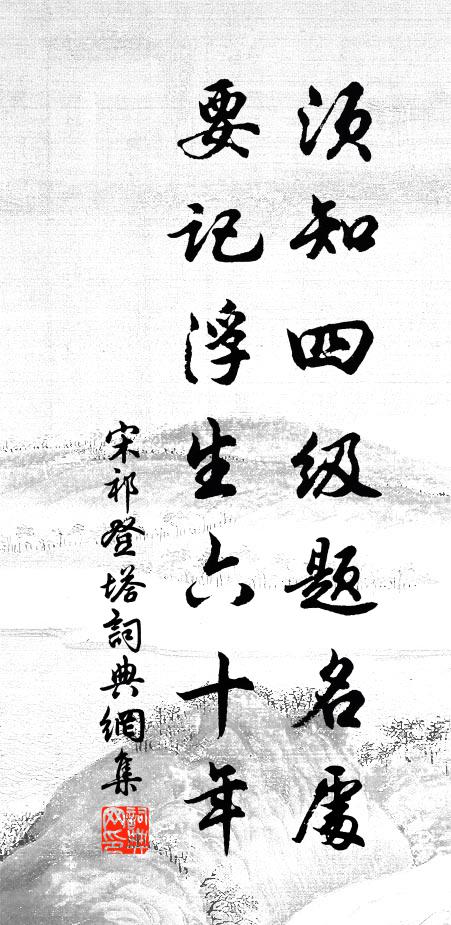 须知四级题名处
要记浮生六十年
宋祁登塔詞典網集